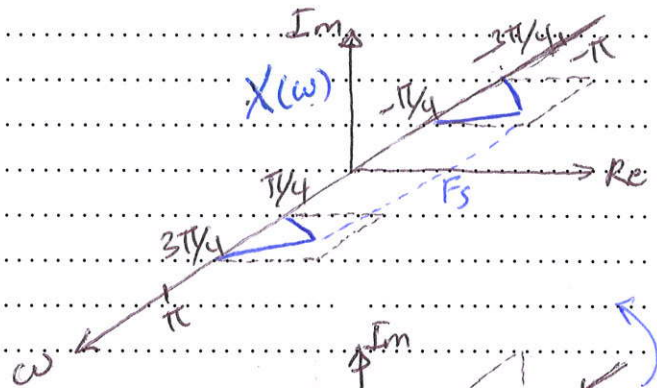 Im
-3π/4
-π
X(ω)
-π/4
Re
π/4
Fs
3π/4
π
ω
Im